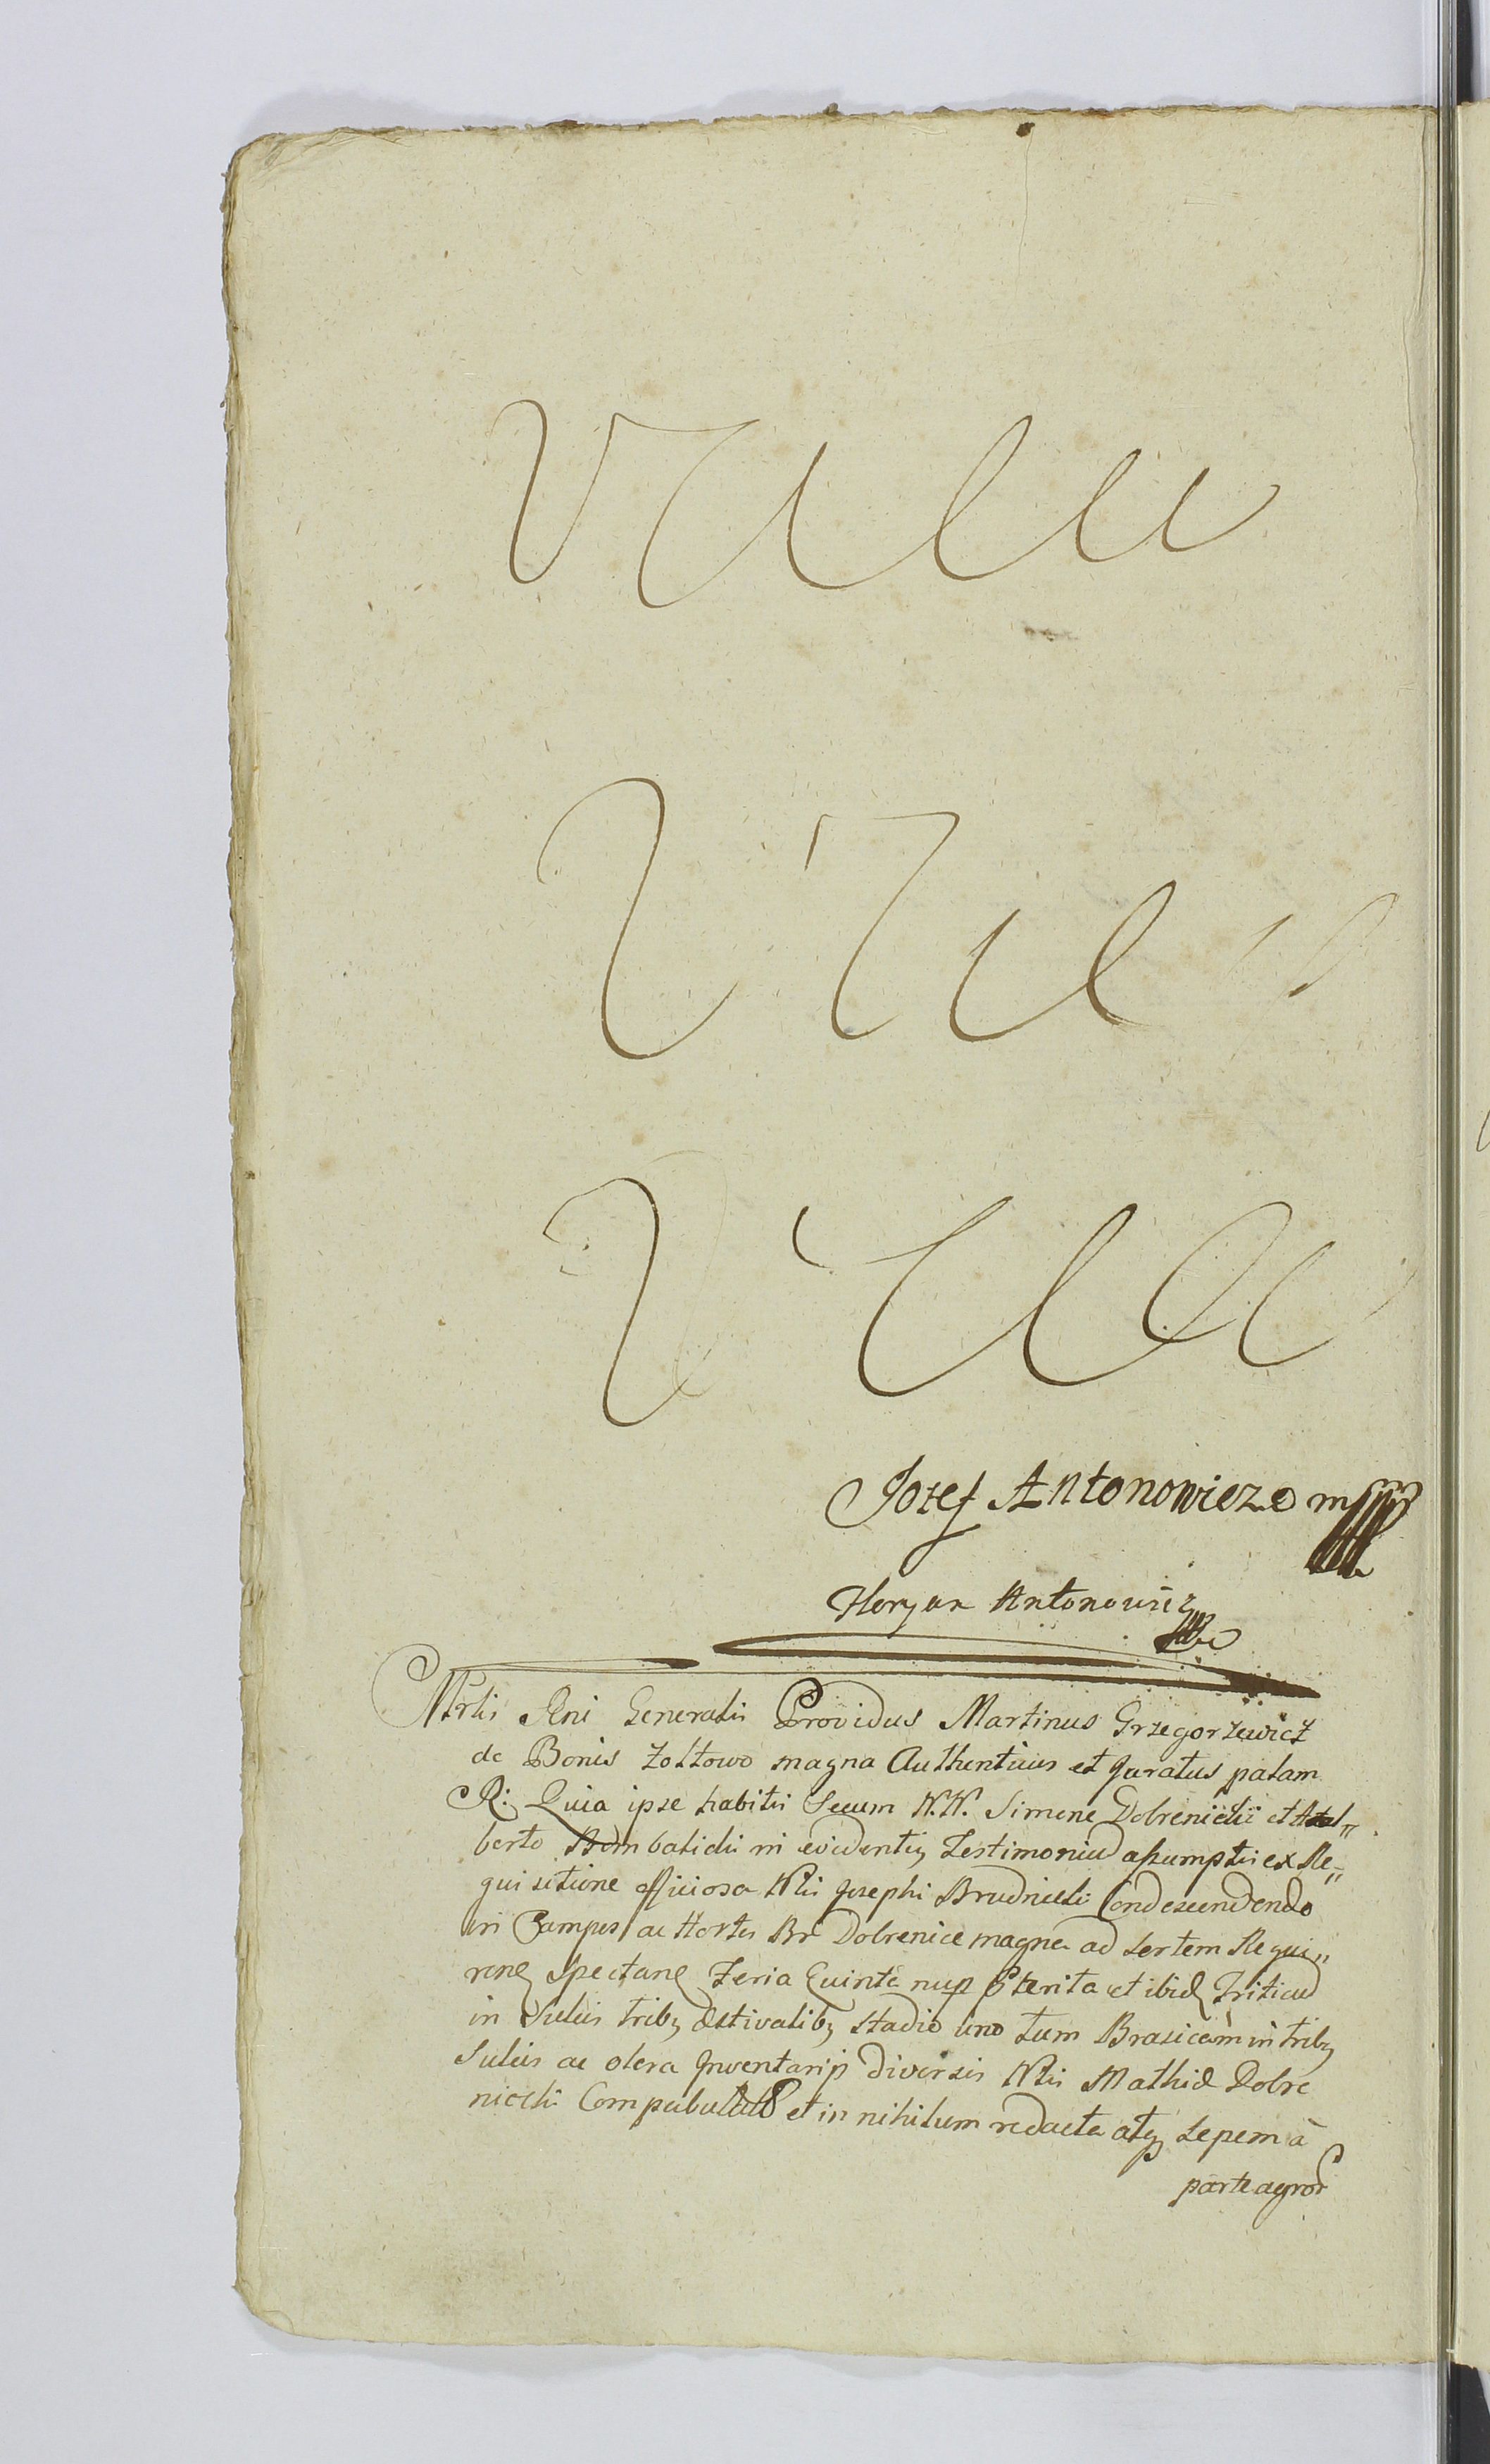 Jozef Antonowicz mpp
Floryan Antonowicz
Mrlis Rni Generalis Providus Martinus Grzegorzewicz
de Bonis Zoltowo magna Authenticus et Juratus palam
R: Quia ipse habitis Secum N.N. Simone Dobrenicki et Adal„
berto in evidentis Testimoniu assumptis ex Re„
quisitione officiosa Nlis Josephi Brudnicki Condescendendo
in Campos ac Hortos Br Dobrenice magna ad sortem Requi„
ren spectan Feria Quinta nup pterita et ibid Triticu
in Sulcis tribz Estivalibz stadio uno tum Brasicam in tribz
Sulcis ac olera Inventarijs diversis Nlis Mathia Dobre
nicki Compabulata et in nihilum redacta atqz sepem a
parte agror